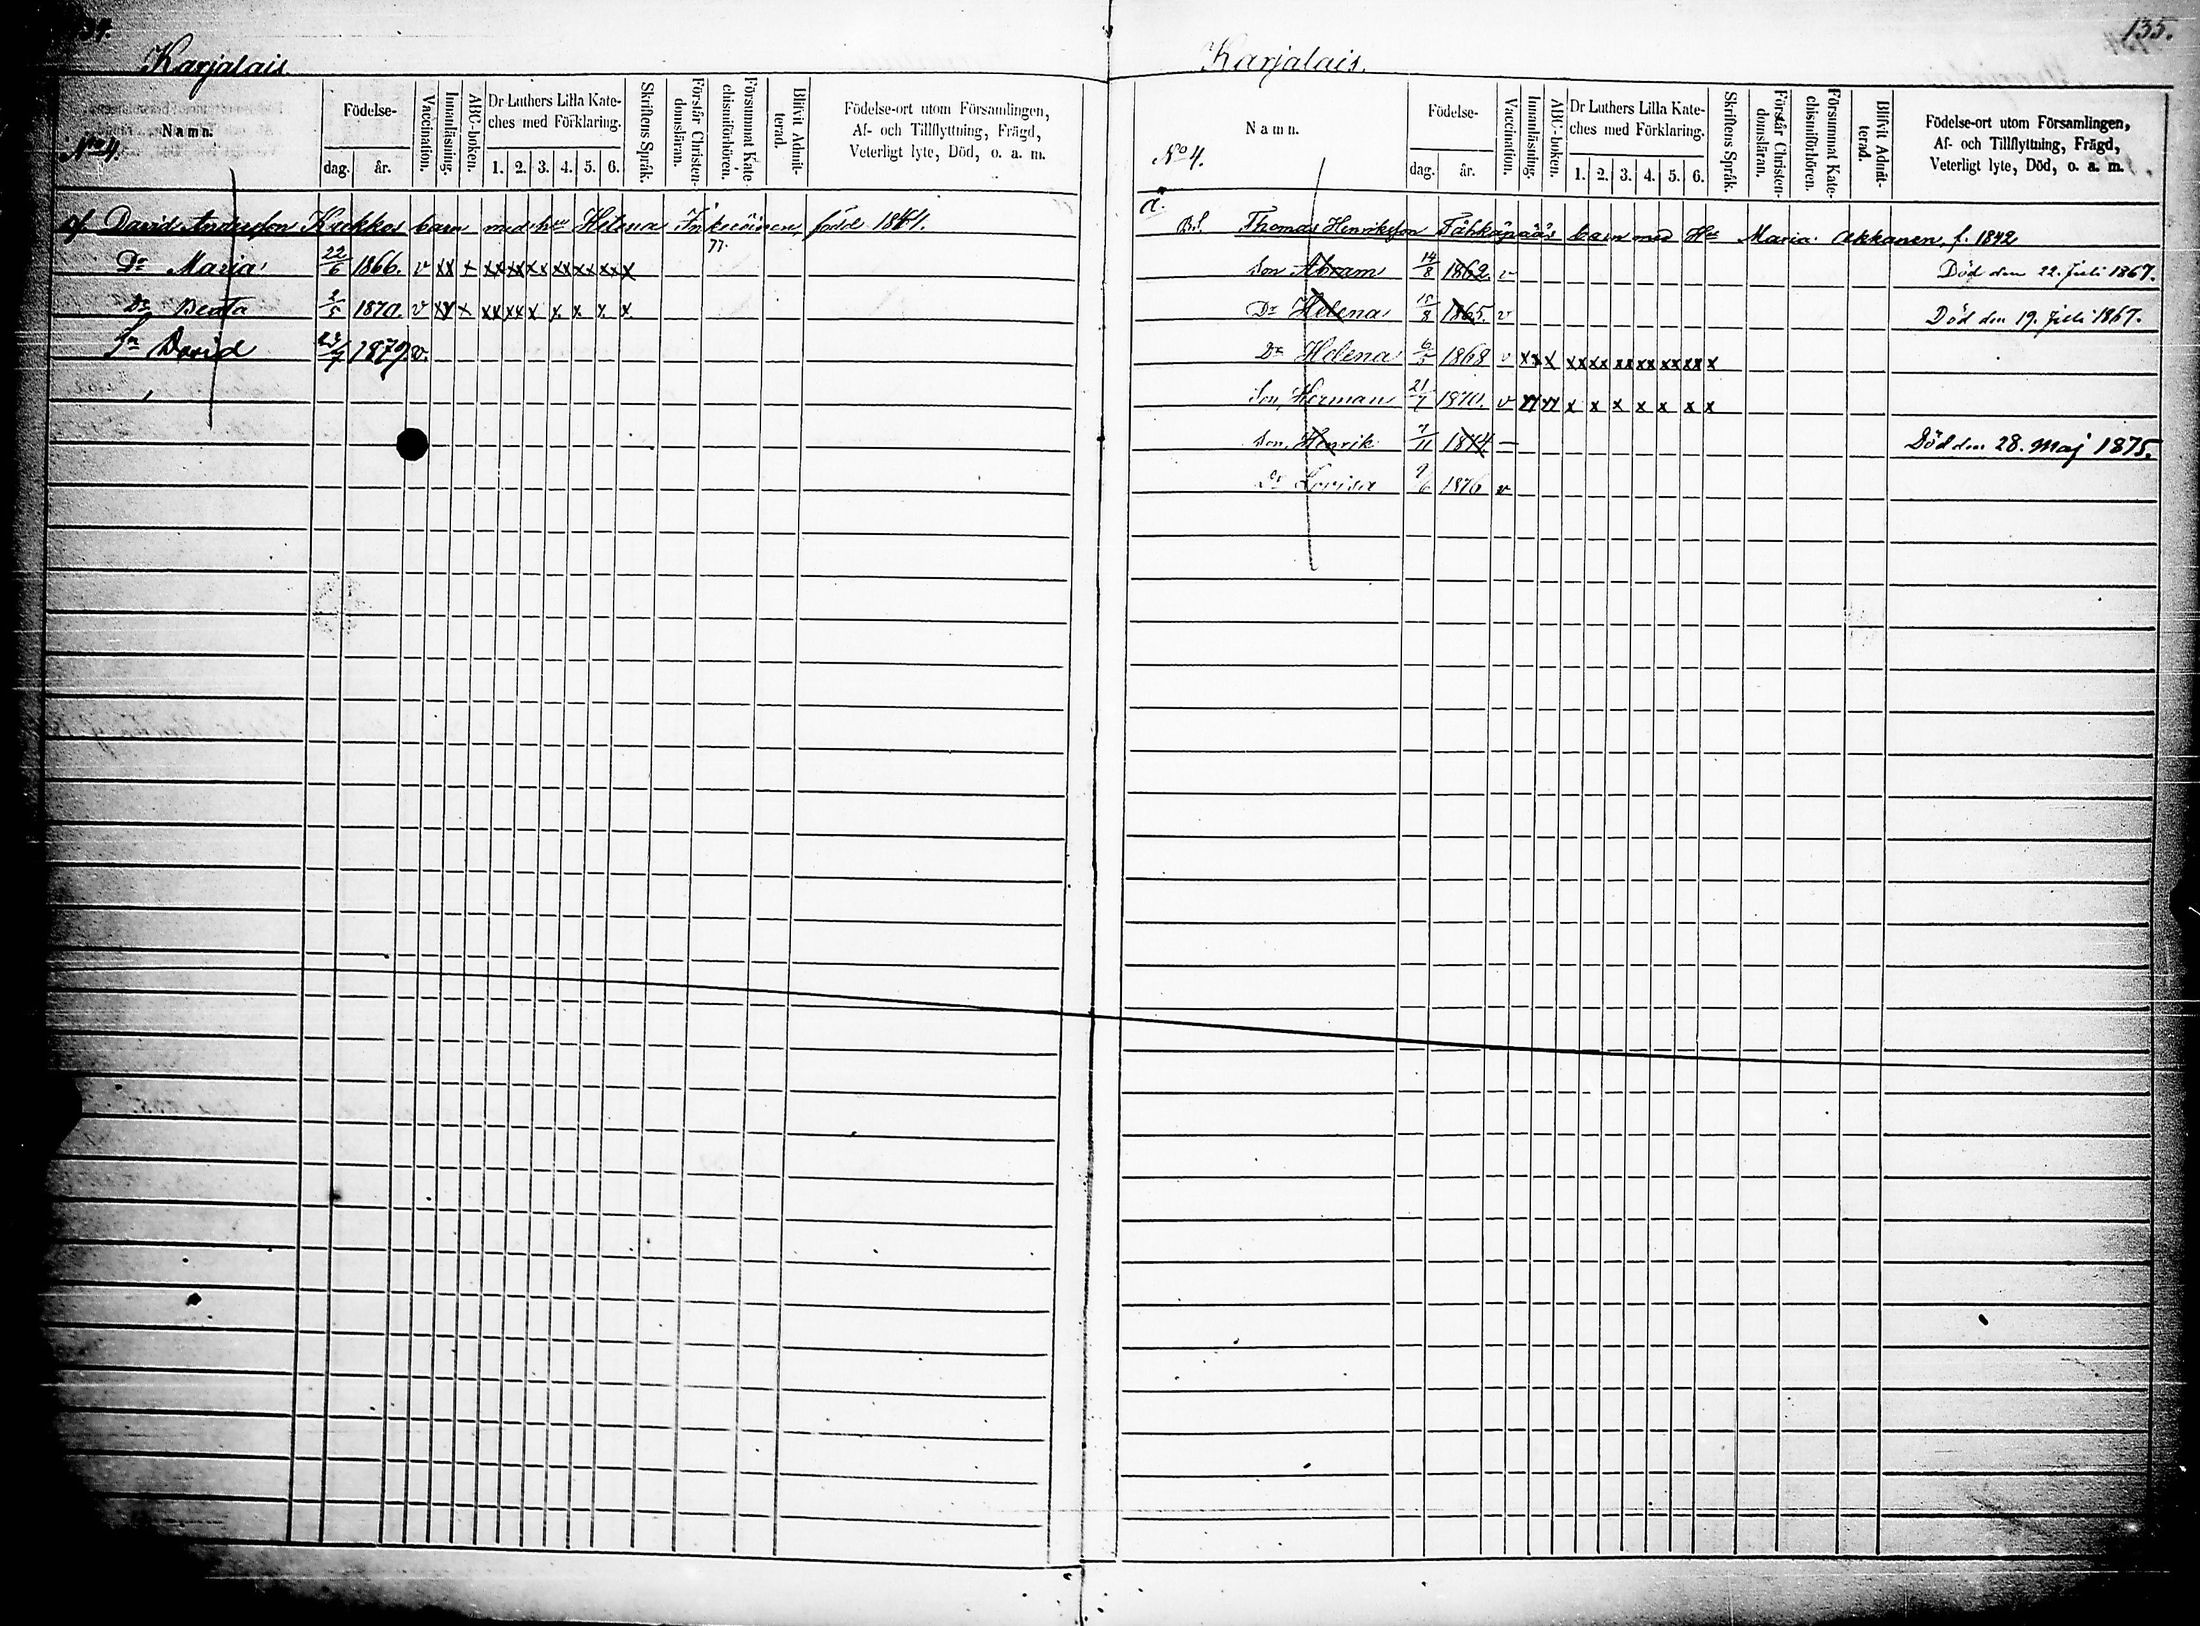 34.
Karjalais.
Namn.
No 4.
Födelse-
dag.
år.
Vaccination.
Innanläsning.
ABC-boken.
Dr Luthers Lilla Kate-
ches med Förklaring.
1. 2. 3. 4. 5. 6.
Skriftens Språk.
Förstår Christen-
domsläran.
Försummat Kate-
chismiförhören.
Blifvit Admit-
terad.
Födelse-ort utom Församlingen,
Af- och Tillflyttning, Frägd,
Veterligt lyte, Död, o. a. m.
David Andersson Kuckkos barn med hu Helena Inkeröinen född
Dr Maria 22/6 1866. v xx x xx xx xx xx xx xx x
Dr Beata 2/5 1870. v xx x xx xx x x x x x
Sn David 1879 v.
135.
Karjalais.
Namn.
No 4.
Födelse-
dag.
år.
Vaccination.
Innanläsning.
ABC-boken.
Dr Luthers Lilla Kate-
ches med Förklaring.
1. 2. 3. 4. 5. 6.
Skriftens Språk.
Förstår Christen-
domsläran.
Försummat Kate-
chismiförhören.
Blifvit Admit-
terad.
Födelse-ort utom Församlingen,
Af- och Tillflyttning, Frägd,
Veterligt lyte, Död, o. a. m.
a.
Thomas Henriksson Tähkäpää's barn med Hu Maria Ukkanen, f. 1842
Son Abram 14/8 1862 v Död den 22. Juli 1867.
Dr Helena 15/8 1865. v Död den 19. Juli 1867.
Dr Helena 6/5 1868 v xx x xx xx xx xx xx xx x
Son Herman 21/7 1870. v xx xx x x x x x x x
Son Henrik 7/11 1874 — Död den 28. Maj 1875.
Dr Lovisa 9/6 1876 v